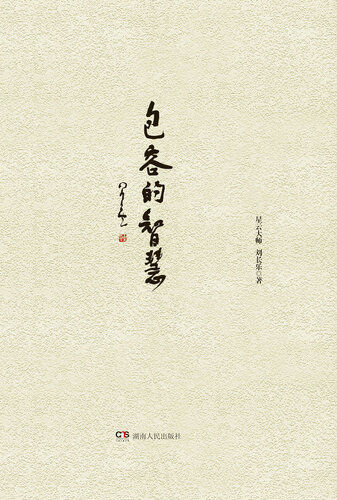 包容的智慧
星云
星云大师 刘长乐◎著
CS 湖南人民出版社